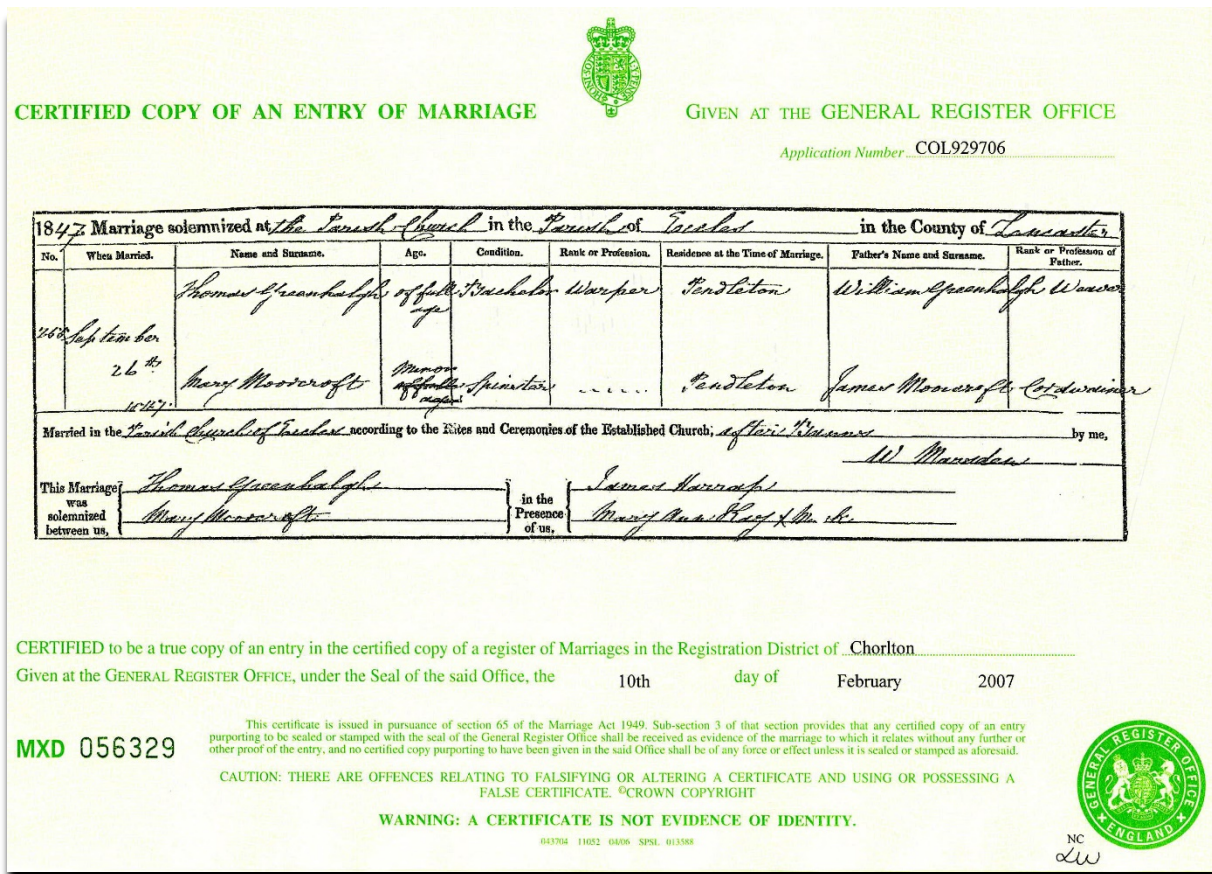 CERTIFIED COPY OF AN ENTRY OF MARRIAGE
GIVEN AT THE GENERAL REGISTER OFFICE
Application Number COL929706
1847. Marriage solemnized at the Parish Church in the Parish of Eccles in the County of Lancaster
No. When Married. Name and Surname. Age. Condition. Rank or Profession. Residence at the Time of Marriage. Father's Name and Surname. Rank or Profession of Father.
Thomas Greenhalgh of full age Bachelor Warper Pendleton William Greenhalgh Weaver
September
26th
1847.
Mary Moorcroft Minor of full age Spinster Pendleton James Moorcroft Cordwainer
Married in the Parish Church of Eccles according to the Rites and Ceremonies of the Established Church, after Banns by me,
W Marsden
This Marriage was solemnized between us,
Thomas Greenhalgh
Mary Moorcroft
in the Presence of us,
James Harrap
Mary Ann Kay X Mark
CERTIFIED to be a true copy of an entry in the certified copy of a register of Marriages in the Registration District of Chorlton
Given at the GENERAL REGISTER OFFICE, under the Seal of the said Office, the 10th day of February 2007
MXD 056329
This certificate is issued in pursuance of section 65 of the Marriage Act 1949. Sub-section 3 of that section provides that any certified copy of an entry
purporting to be sealed or stamped with the seal of the General Register Office shall be received as evidence of the marriage to which it relates without any further or
other proof of the entry, and no certified copy purporting to have been given in the said Office shall be of any force or effect unless it is sealed or stamped as aforesaid.
CAUTION: THERE ARE OFFENCES RELATING TO FALSIFYING OR ALTERING A CERTIFICATE AND USING OR POSSESSING A
FALSE CERTIFICATE. ©CROWN COPYRIGHT
WARNING: A CERTIFICATE IS NOT EVIDENCE OF IDENTITY.
043704 11052 04/06 SPSL 013588
GENERAL REGISTER OFFICE
ENGLAND
NC